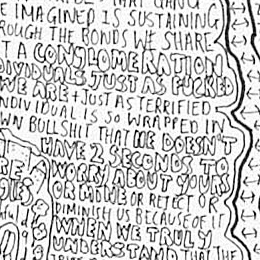 THAT GANG
E IMAGINED IS SUSTAINING
ROUGH THE BONDS WE SHARE
T A CONGLOMERATION
DIVIDUALS JUST AS FUCKED
WE ARE + JUST AS TERRIFIED
NDIVIDUAL IS SO WRAPPED IN
WN BULLSHIT THAT HE DOESN'T
HAVE 2 SECONDS TO
WORRY ABOUT YOURS
OR MINE OR REJECT OR
DIMINISH US BECAUSE OF IT
WHEN WE TRULY
UNDERSTAND THAT THE